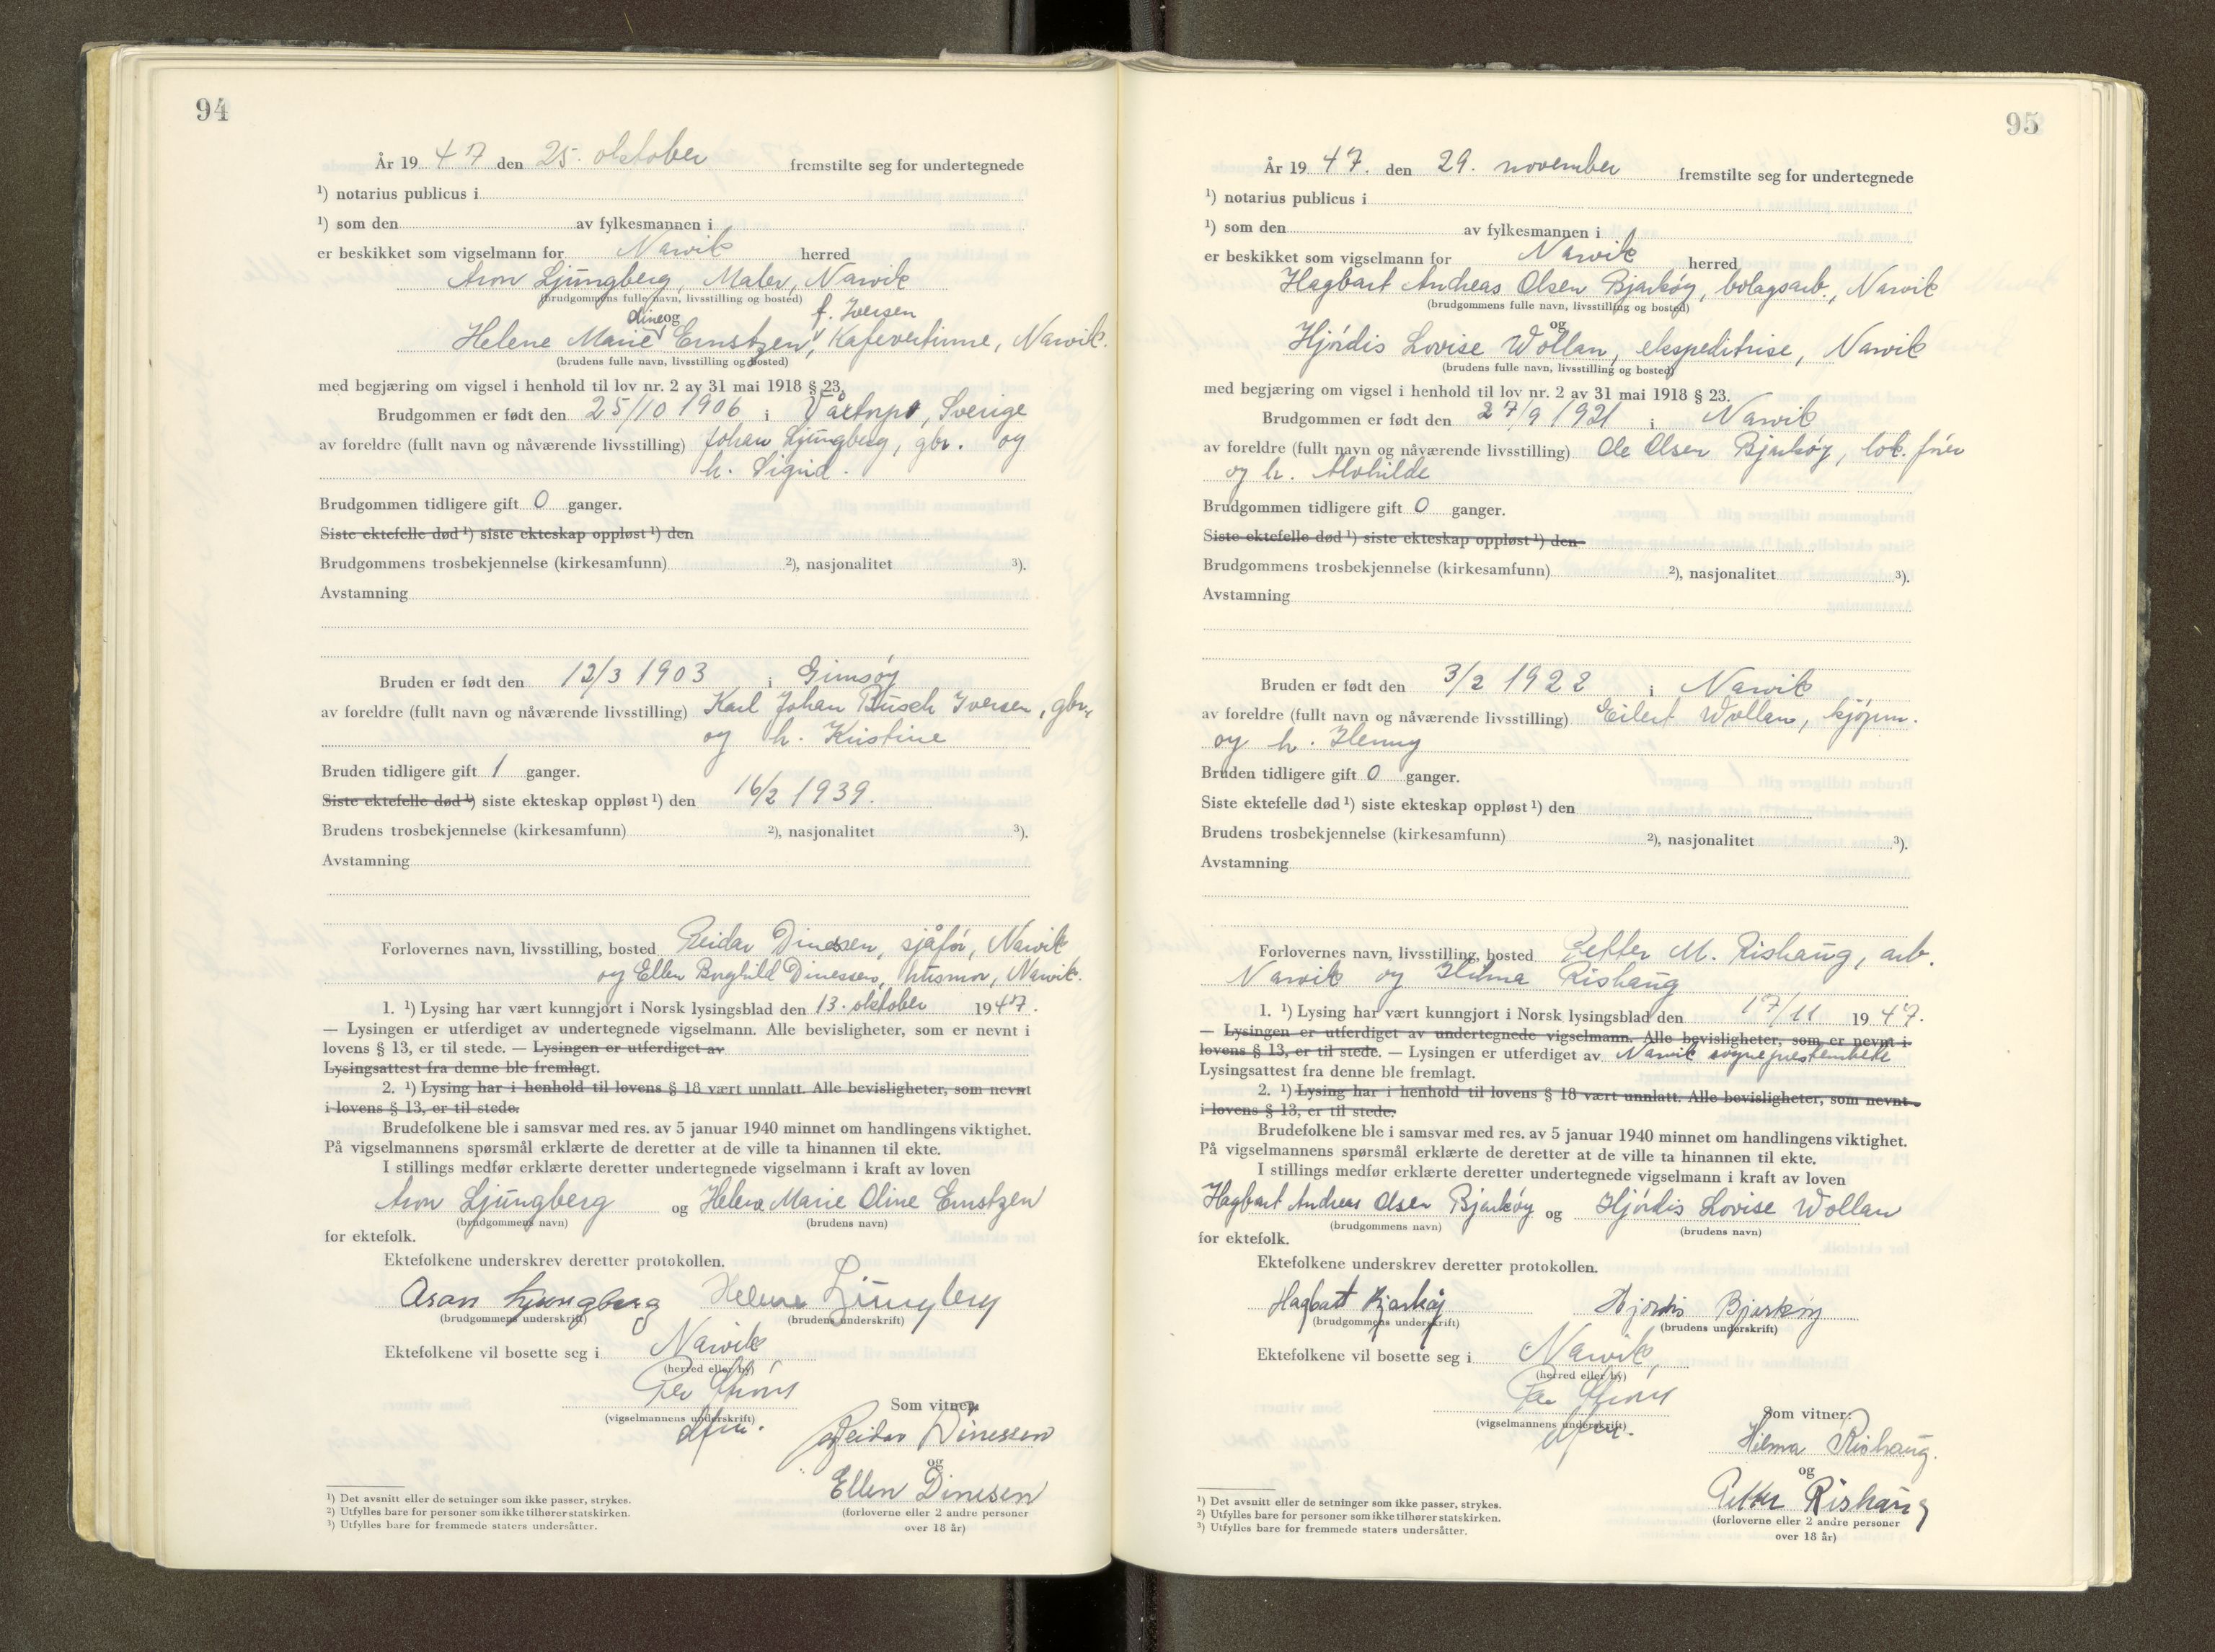 94
År 19 47 den 25. oktober fremstilte seg for undertegnede
¹) notarius publicus i
¹) som den av fylkesmannen i
er beskikket som vigselmann for Narvik herred
Aron Ljungberg, Maler, Narvik
(brudgommens fulle navn, livsstilling og bosted)
og
Oline f. Iversen
Helene Marie Ernstzen, Kafevertinne, Narvik.
(brudens fulle navn, livsstilling og bosted)
med begjæring om vigsel i henhold til lov nr. 2 av 31 mai 1918 § 23.
Brudgommen er født den 25/10 1906 i Våxtorp, Sverige
av foreldre (fullt navn og nåværende livsstilling) Johan Ljungberg, gbr. og
h. Sigrid.
Brudgommen tidligere gift 0 ganger.
Siste ektefelle død ¹) siste ekteskap oppløst ¹) den
Brudgommens trosbekjennelse (kirkesamfunn) ²), nasjonalitet ³).
Avstamning
Bruden er født den 12/3 1903 i Gimsøy
av foreldre (fullt navn og nåværende livsstilling) Karl Johan Busch Iversen, gbr.
og h. Kristine
Bruden tidligere gift 1 ganger.
Siste ektefelle død ¹) siste ekteskap oppløst ¹) den 16/2 1939.
Brudens trosbekjennelse (kirkesamfunn) ²), nasjonalitet ³).
Avstamning
Forlovernes navn, livsstilling, bosted Reidar Dinessen, sjåfør, Narvik
og Ellen Borghild Dinessen, husmor, Narvik.
1. ¹) Lysing har vært kunngjort i Norsk lysingsblad den 13. oktober 1947.
— Lysingen er utferdiget av undertegnede vigselmann. Alle bevisligheter, som er nevnt i
lovens § 13, er til stede. — Lysingen er utferdiget av
Lysingsattest fra denne ble fremlagt.
2. ¹) Lysing har i henhold til lovens § 18 vært unnlatt. Alle bevisligheter, som nevnt
i lovens § 13, er til stede.
Brudefolkene ble i samsvar med res. av 5 januar 1940 minnet om handlingens viktighet.
På vigselmannens spørsmål erklærte de deretter at de ville ta hinannen til ekte.
I stillings medfør erklærte deretter undertegnede vigselmann i kraft av loven
Aron Ljungberg og Helene Marie Oline Ernstzen
(brudgommens navn) (brudens navn)
for ektefolk.
Ektefolkene underskrev deretter protokollen.
Aron Ljungberg Helene Ljungberg
(brudgommens underskrift) (brudens underskrift)
Ektefolkene vil bosette seg i Narvik
(herred eller by)
Per
(vigselmannens underskrift)
dfm.
Som vitner:
Reidar Dinessen
og
Ellen Dinesen
(forloverne eller 2 andre personer
over 18 år)
¹) Det avsnitt eller de setninger som ikke passer, strykes.
²) Utfylles bare for personer som ikke tilhører statskirken.
³) Utfylles bare for fremmede staters undersåtter.
95
År 19 47. den 29. november fremstilte seg for undertegnede
¹) notarius publicus i
¹) som den av fylkesmannen i
er beskikket som vigselmann for Narvik herred
Hagbart Andreas Olsen Bjarkøy, bolagsarb., Narvik
(brudgommens fulle navn, livsstilling og bosted)
og
Hjørdis Lovise Wollan, ekspeditrise, Narvik
(brudens fulle navn, livsstilling og bosted)
med begjæring om vigsel i henhold til lov nr. 2 av 31 mai 1918 § 23.
Brudgommen er født den 27/9 1921 i Narvik
av foreldre (fullt navn og nåværende livsstilling) Ole Olsen Bjarkøy, lok. fører
og h. Alvhilde
Brudgommen tidligere gift 0 ganger.
Siste ektefelle død ¹) siste ekteskap oppløst ¹) den
Brudgommens trosbekjennelse (kirkesamfunn) ²), nasjonalitet ³).
Avstamning
Bruden er født den 3/2 1922 i Narvik
av foreldre (fullt navn og nåværende livsstilling) Eilert Wollan, kjøpm.
og h. Henny
Bruden tidligere gift 0 ganger.
Siste ektefelle død ¹) siste ekteskap oppløst ¹) den
Brudens trosbekjennelse (kirkesamfunn) ²), nasjonalitet ³).
Avstamning
Forlovernes navn, livsstilling, bosted Petter M. Rishaug, arb.
Narvik og Hilma Rishaug
1. ¹) Lysing har vært kunngjort i Norsk lysingsblad den 17/11 1947.
— Lysingen er utferdiget av undertegnede vigselmann. Alle bevisligheter, som er nevnt i
lovens § 13, er til stede. — Lysingen er utferdiget av Narvik sogneprestembete
Lysingsattest fra denne ble fremlagt.
2. ¹) Lysing har i henhold til lovens § 18 vært unnlatt. Alle bevisligheter, som nevnt
i lovens § 13, er til stede.
Brudefolkene ble i samsvar med res. av 5 januar 1940 minnet om handlingens viktighet.
På vigselmannens spørsmål erklærte de deretter at de ville ta hinannen til ekte.
I stillings medfør erklærte deretter undertegnede vigselmann i kraft av loven
Hagbart Andreas Olsen Bjarkøy og Hjørdis Lovise Wollan
(brudgommens navn) (brudens navn)
for ektefolk.
Ektefolkene underskrev deretter protokollen.
Hagbart Bjarkøy Hjørdis Bjarkøy
(brudgommens underskrift) (brudens underskrift)
Ektefolkene vil bosette seg i Narvik,
(herred eller by)
Per
(vigselmannens underskrift)
dfm.
Som vitner:
Hilma Rishaug.
og
Petter Rishaug
(forloverne eller 2 andre personer
over 18 år)
¹) Det avsnitt eller de setninger som ikke passer, strykes.
²) Utfylles bare for personer som ikke tilhører statskirken.
³) Utfylles bare for fremmede staters undersåtter.